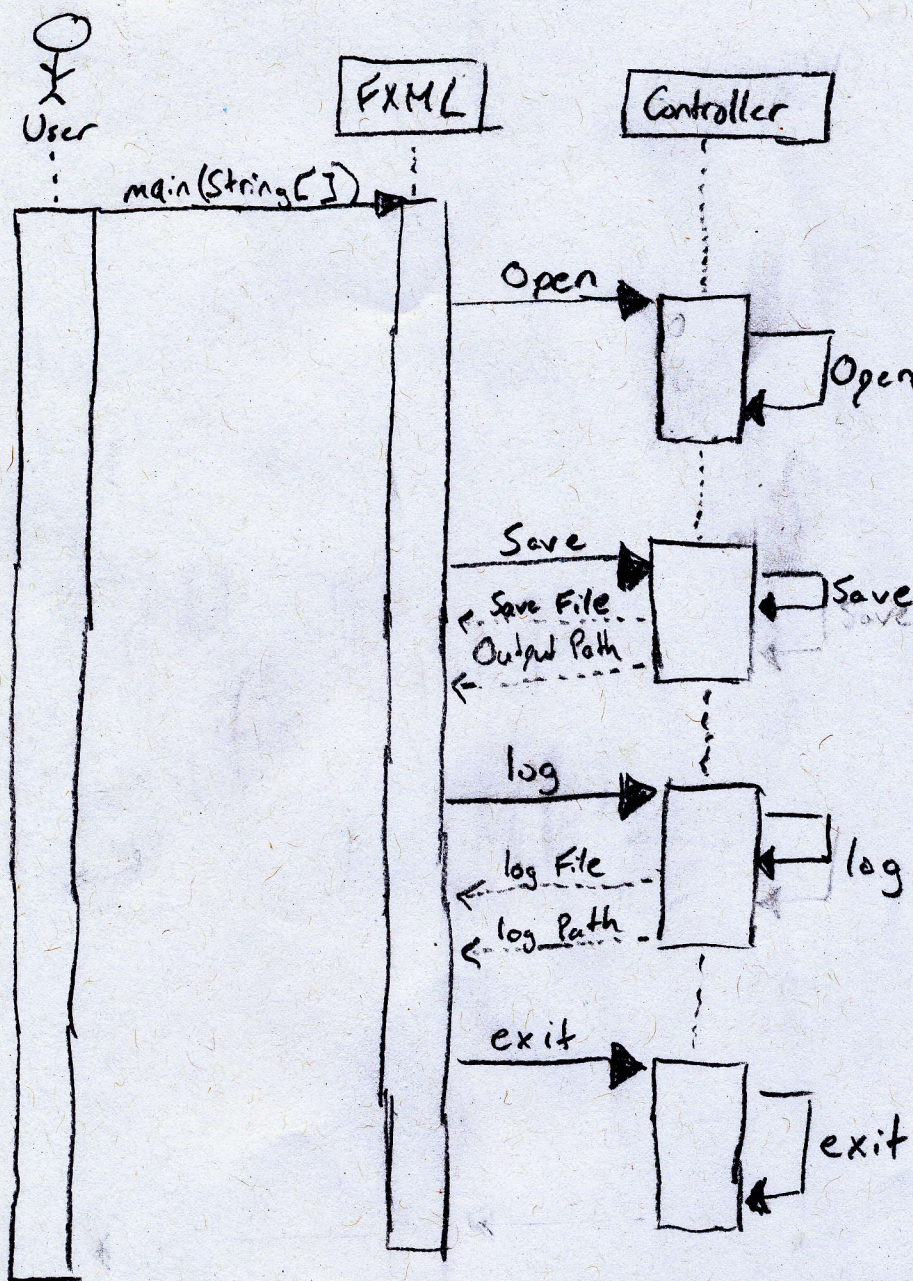 User
FXML
Controller
main(String[])
Open
Open
Save
Save
Save File
Save
Output Path
log
log
log File
log Path
exit
exit